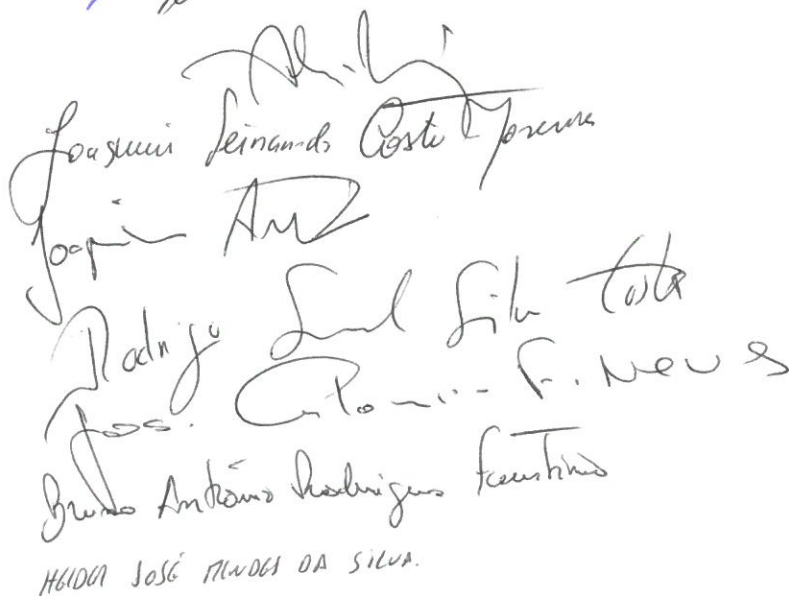 Joaquim Fernando Costa Moreira
Joaquim
Rodrigo Silva Costa
José F. Neves
Bruno António Rodrigues Faustino
HELDER JOSÉ MENDES DA SILVA.